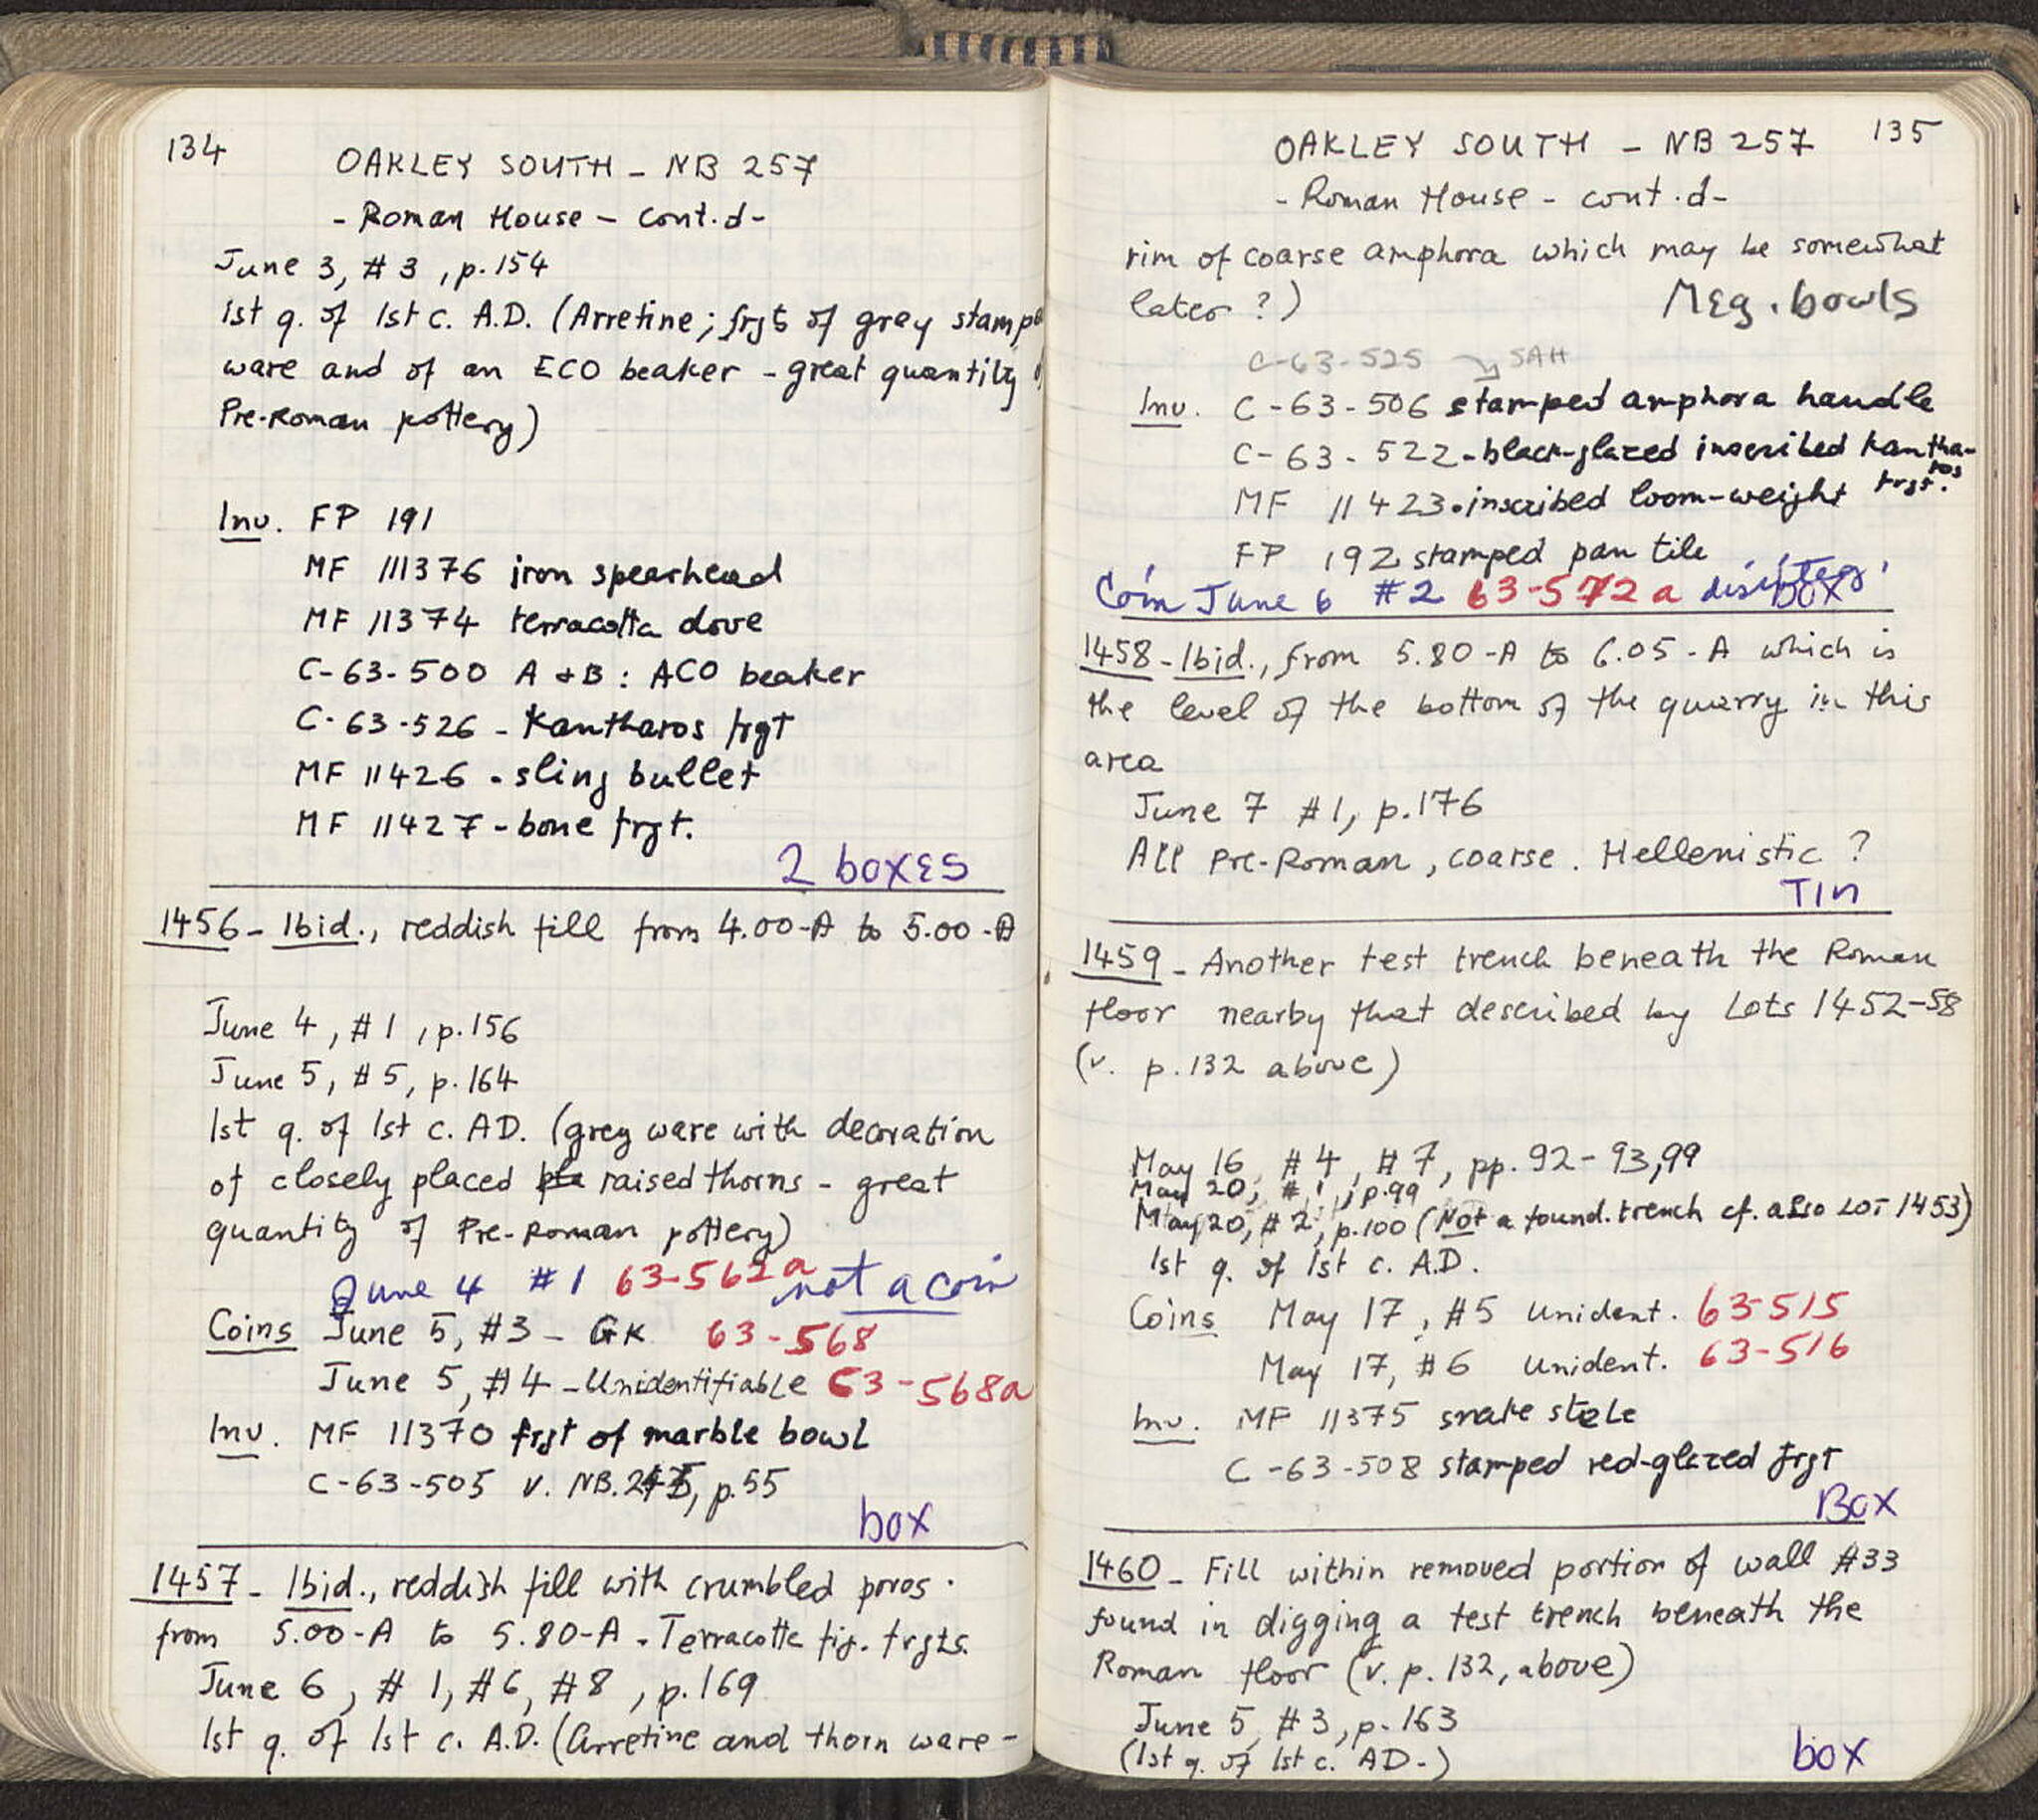 134
OAKLEY SOUTH - NB 257
- Roman House - cont.d-
June 3, #3, p.154
1st q. of 1st c. A.D. (Arretine; frgts of grey stampe
ware and of an ECO beaker - great quantity
Pre-Roman pottery)
Inv. FP 191
MF 111376 iron spearhead
MF 11374 terracotta dove
C-63-500 A + B : ACO beaker
C-63-526 - Kantharos frgt
MF 11426 - sling bullet
MF 11427 - bone frgt.
2 boxes
1456 - Ibid., reddish fill from 4.00-A to 5.00-A
June 4, #1, p.156
June 5, #5, p.164
1st q. of 1st c. AD. (grey ware with decoration
of closely placed pla raised thorns - great
quantity of Pre-Roman pottery)
June 4 #1 63-562a not a coin
Coins June 5, #3 - GK 63-568
June 5, #4 - Unidentifiable 63-568a
Inv. MF 11370 frgt of marble bowl
C-63-505 v. NB. p.55
box
1457 - Ibid., reddish fill with crumbled poros.
from 5.00-A to 5.80-A. Terracotta fig. frgts.
June 6, #1, #6, #8, p.169
1st q. of 1st c. A.D. (Arretine and thorn ware -
OAKLEY SOUTH - NB 257 135
- Roman House - cont.d-
rim of coarse amphora which may be somewhat
later?) Meg. bowls
C-63-525 SAH
Inv. C-63-506 stamped amphora handle
C-63-522 - black-glazed inscribed kantha-
ros frgt.
MF 11423 - inscribed loom-weight
FP 192 stamped pan tile
Coin June 6 #2 63-572a disinteg. box
1458 - Ibid., from 5.80-A to 6.05-A which is
the level of the bottom of the quarry in this
area
June 7 #1, p.176
All Pre-Roman, coarse. Hellenistic?
Tin
1459 - Another test trench beneath the Roman
floor nearby that described by Lots 1452-58
(v. p.132 above)
May 16, #4, #7, pp. 92-93,99
May 20, #1, p.99
May 20, #2, p.100 (Not a found. trench cf. also Lot 1453)
1st q. of 1st c. A.D.
Coins May 17, #5 unident. 63-515
May 17, #6 unident. 63-516
Inv. MF 11375 snake stele
C-63-508 stamped red-glazed frgt
Box
1460 - Fill within removed portion of wall #33
found in digging a test trench beneath the
Roman floor (v. p. 132, above)
June 5, #3, p.163
(1st q. of 1st c. AD.)
box